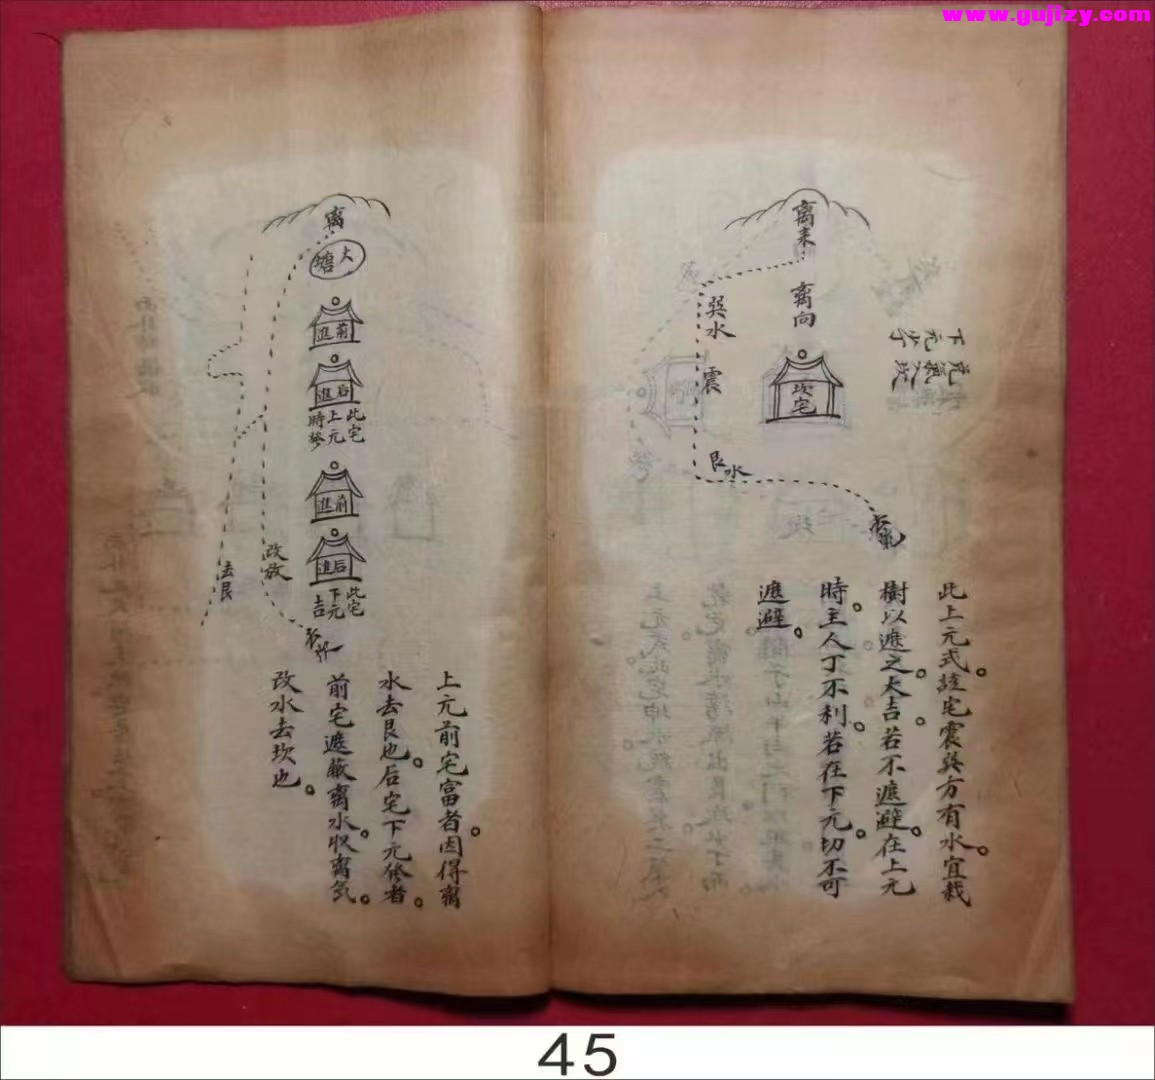 www.gujizy.com
離來
離向
巽水
震
坎宅
艮水
下元水
此上元式該宅震巽方有水宜栽
樹以遮之大吉若不遮避在上元
時主人丁不利若在下元切不可
遮避
離
大塘
前進
后進
此宅
上元
時發
前進
后進
此宅
下元
吉
改放
去艮
上元前宅富者因得離
水去艮也后宅下元修者
前宅遮蔽離水收離氣
改水去坎也
45